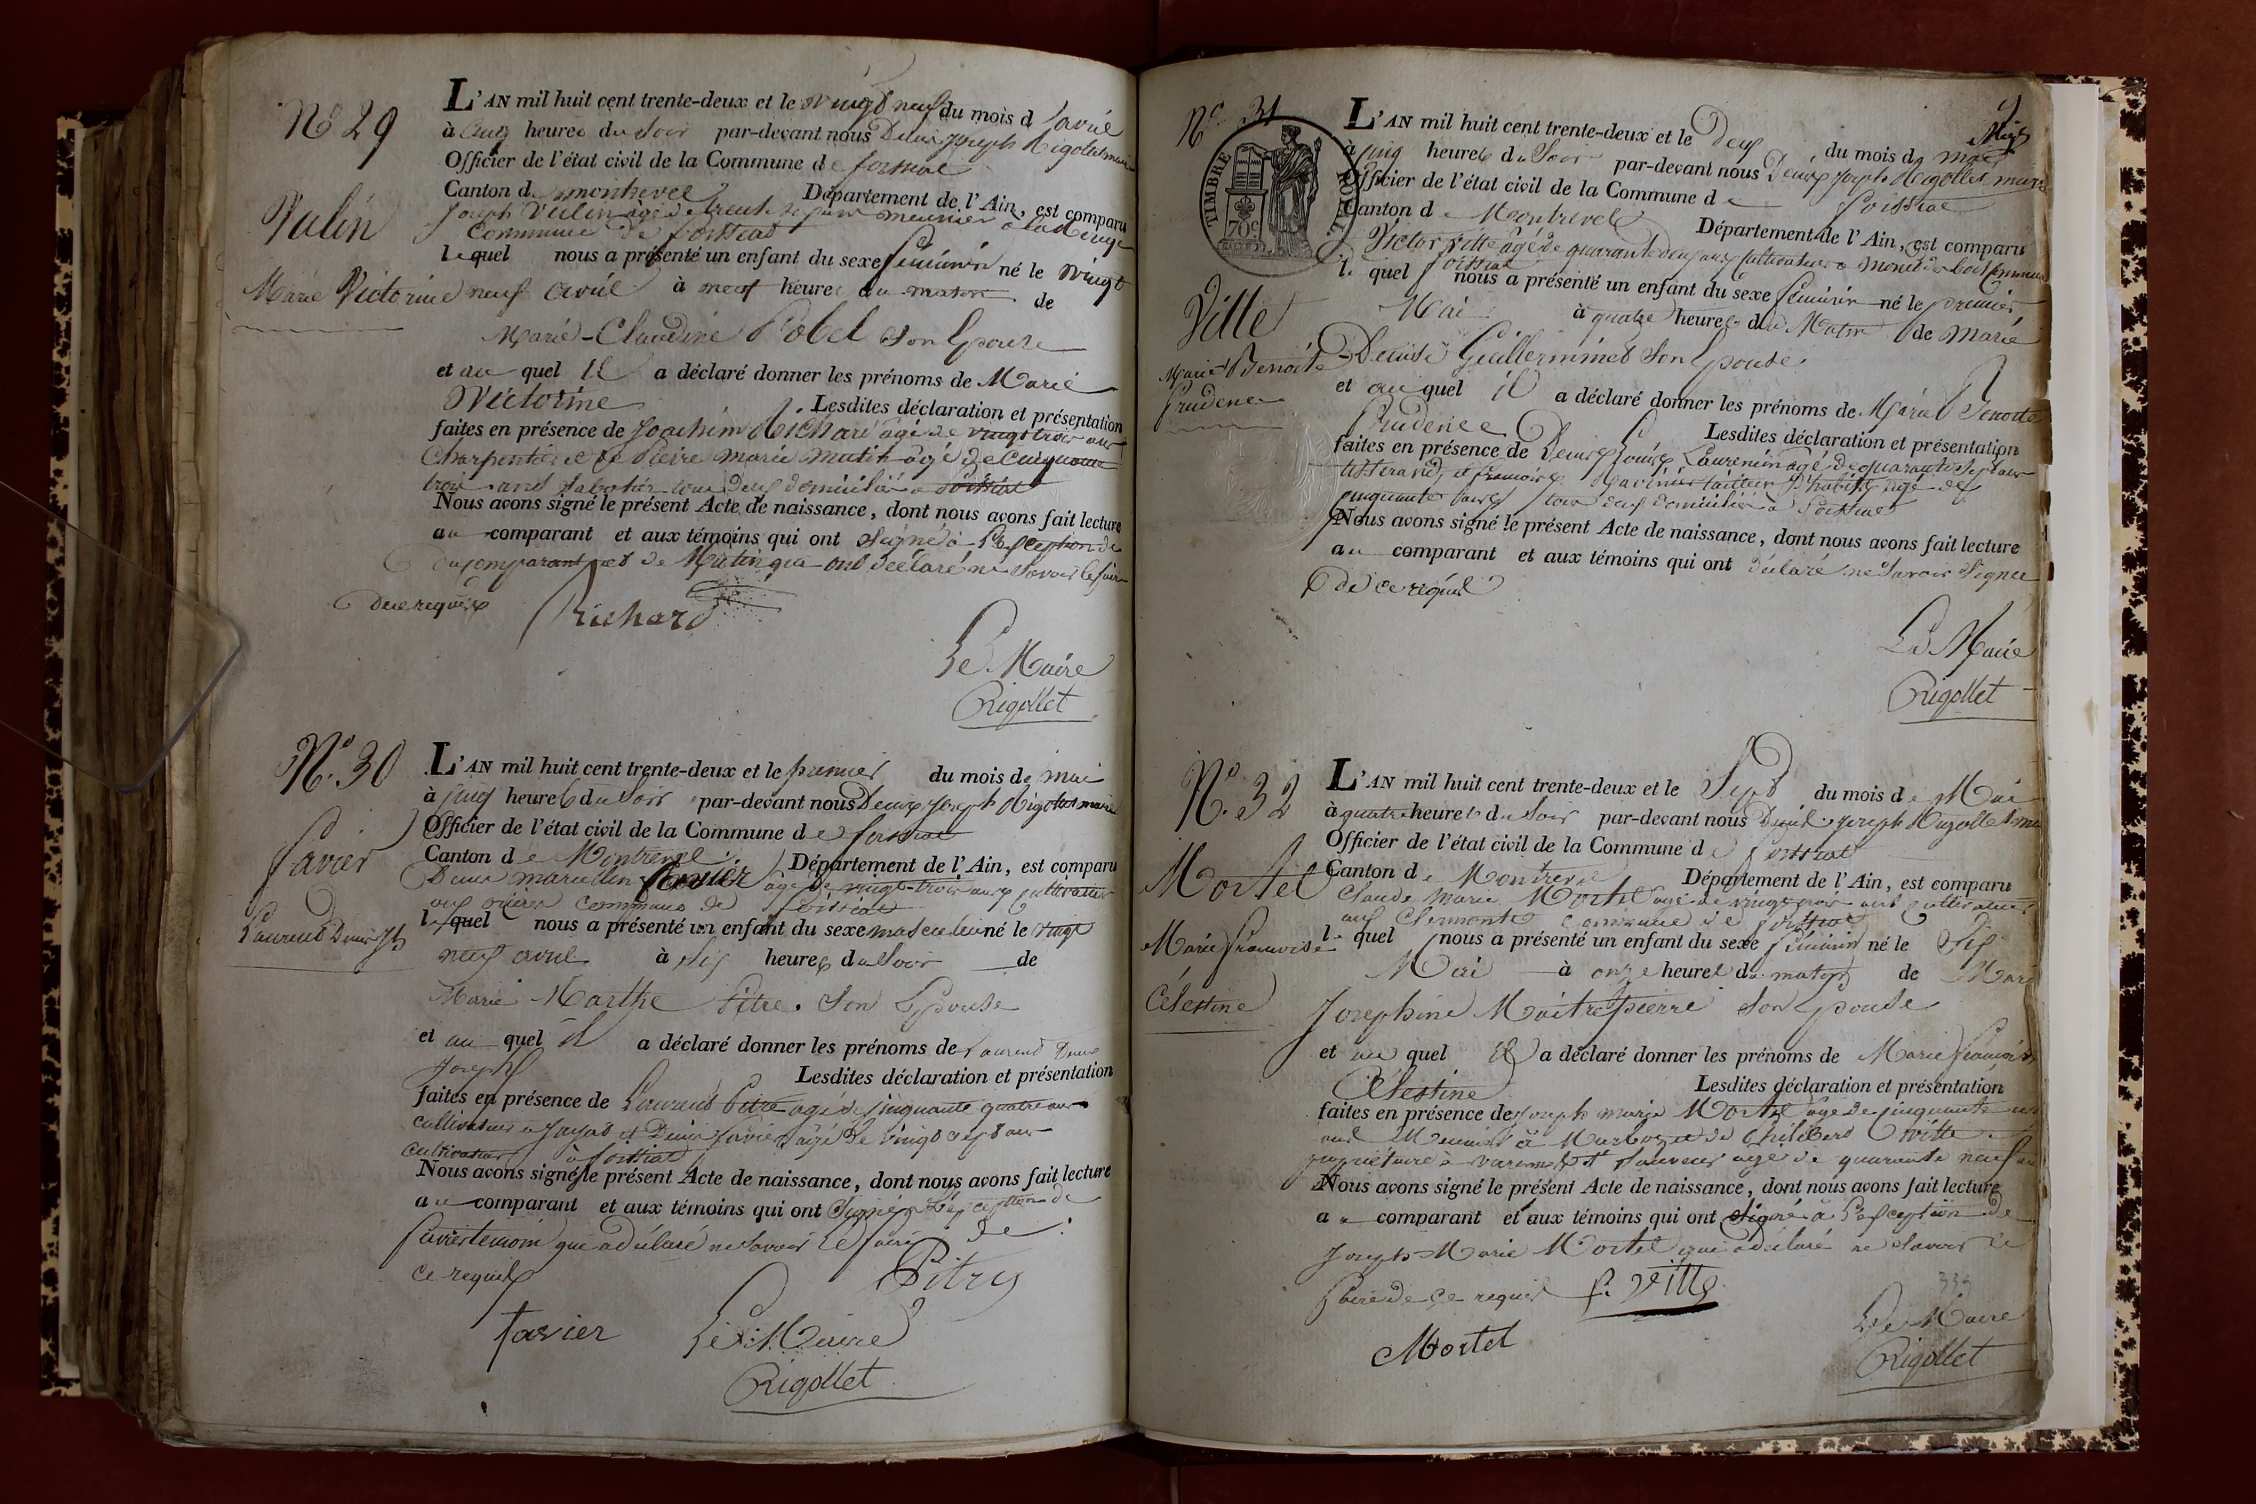 No 29
Valin
Marie Victorine
L'AN mil huit cent trente-deux et le vingt neuf du mois d'avril
à cinq heures du soir par-devant nous Denis Joseph Rigollet maire
Officier de l'état civil de la Commune de foissiat
Canton de montrevel Département de l'Ain, est comparu
Joseph Valin âgé de trente ans meunier
Commune de foissiat
lequel nous a présenté un enfant du sexe féminin né le vingt
neuf avril à neuf heures du matin de
Marie-Claudine Pobel son épouse
et au quel il a déclaré donner les prénoms de Marie
Victorine Lesdites déclaration et présentation
faites en présence de Joachim Richard âgé de vingt trois ans
Charpentier et de Pierre Marie Mutin âgé de cinquante
trois ans sabotier tous deux domiciliés à foissiat
Nous avons signé le présent Acte de naissance, dont nous avons fait lecture
au comparant et aux témoins qui ont signé à l'exception de
du comparant et de Mutin qui ont déclaré ne savoir le faire
de ce requis
Richard
Le Maire
Rigollet
No. 30
favier
Laurend Denis Jph
L'AN mil huit cent trente-deux et le premier du mois de mai
à cinq heures du soir par-devant nous Denis Joseph Rigollet maire
Officier de l'état civil de la Commune de foissiat
Canton de Montrevel Département de l'Ain, est comparu
Denis marcellin favier âgé de vingt-trois ans cultivateur
aux commune de foissiat
lequel nous a présenté un enfant du sexe masculin né le vingt
neuf avril à six heures du soir de
Marie Marthe Pitre son épouse
et au quel il a déclaré donner les prénoms de Laurend Denis
Joseph Lesdites déclaration et présentation
faites en présence de Laurend Pitre âgé de cinquante quatre ans
cultivateur à Jayat et Denis favier âgé de vingt sept ans
cultivateur à foissiat
Nous avons signé le présent Acte de naissance, dont nous avons fait lecture
au comparant et aux témoins qui ont signé à l'exception de
favier temoin qui a déclaré ne savoir le faire de
ce requis
Pitre
favier
Le Maire
Rigollet
No 31
TIMBRE ROYAL
70c
Ville
Marie Benoite
Prudence
L'AN mil huit cent trente-deux et le Deux du mois de mai
à cinq heures du soir par-devant nous Denis Joseph Rigollet maire
Officier de l'état civil de la Commune de Foissiat
Canton de Montrevel Département de l'Ain, est comparu
Victor Ville âgé de quarante deux ans cultivateur à commune
foissiat
le quel nous a présenté un enfant du sexe féminin né le premier
Mai à quatre heures du Matin de Marie
Denise Guillerminet son épouse
et au quel il a déclaré donner les prénoms de Marie Benoite
Prudence Lesdites déclaration et présentation
faites en présence de Denis Louis Laurencin âgé de quarante sept ans
tisserand, et françois tailleur d'habits âgé de
cinquante tous deux domiciliés à foissiat
Nous avons signé le présent Acte de naissance, dont nous avons fait lecture
au comparant et aux témoins qui ont déclaré ne savoir signer
de ce requis
Le Maire
Rigollet
No. 32
Mortel
Marie françoise
Célestine
L'AN mil huit cent trente-deux et le Sept du mois de Mai
à quatre heures du soir par-devant nous Denis Joseph Rigollet maire
Officier de l'état civil de la Commune de foissiat
Canton de Montrevel Département de l'Ain, est comparu
Claude Marie Mortel âgé de vingt trois ans cultivateur
aux Commune de foissiat
le quel nous a présenté un enfant du sexe féminin né le Six
Mai à onze heures du matin de Marie
Josephine Maitrepierre son épouse
et au quel il a déclaré donner les prénoms de Marie françoise
Célestine Lesdites déclaration et présentation
faites en présence de Joseph marie Mortel âgé de cinquante
ans Meunier à Marboz et de Philibert Ville
propriétaire à varennes St Sauveur âgé de quarante neuf ans
Nous avons signé le présent Acte de naissance, dont nous avons fait lecture
au comparant et aux témoins qui ont signé à l'exception de
Joseph-Marie Mortel qui a déclaré ne savoir le
faire de ce requis
f. Ville
Mortel
Le Maire
Rigollet